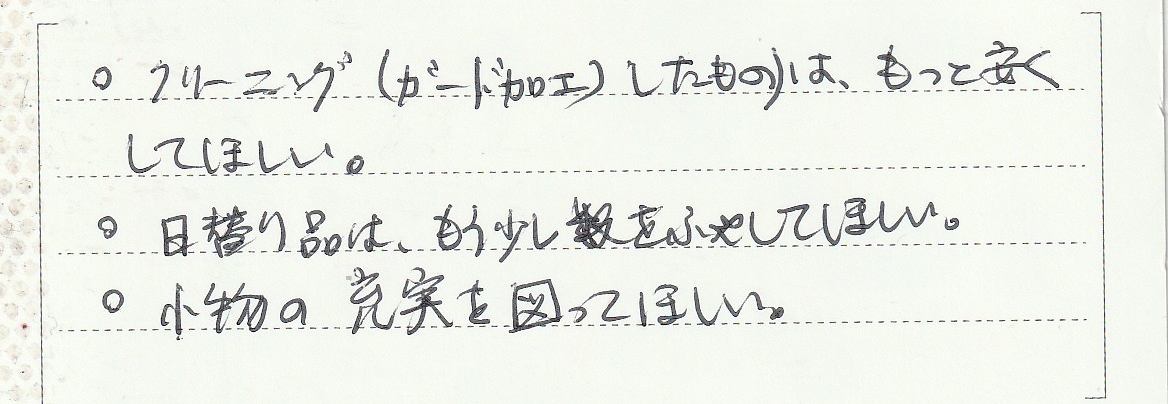 ○ クリーニング(ガード加工)したもの)は、もっと安く
してほしい。
○ 日替り品は、もう少し数をふやしてほしい。
○ 小物の充実を図ってほしい。